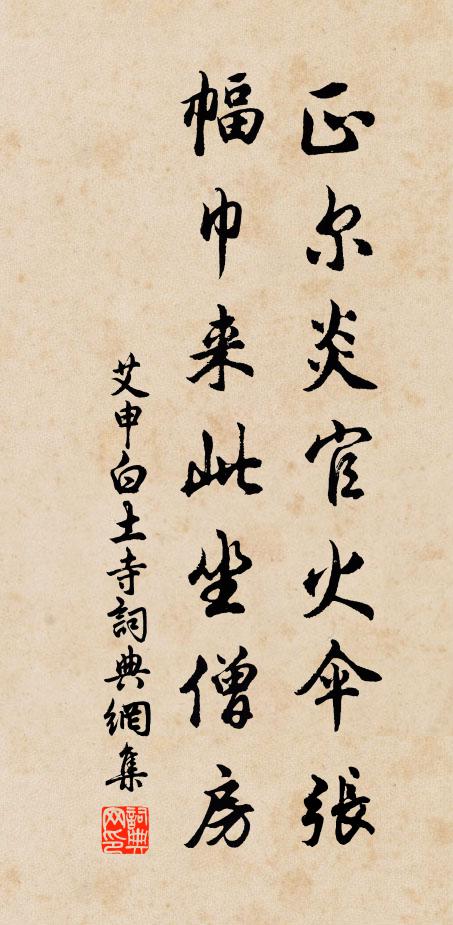 正尔炎官火伞張
幅巾来此坐僧房
艾申白土寺詞典網集
詞典网印